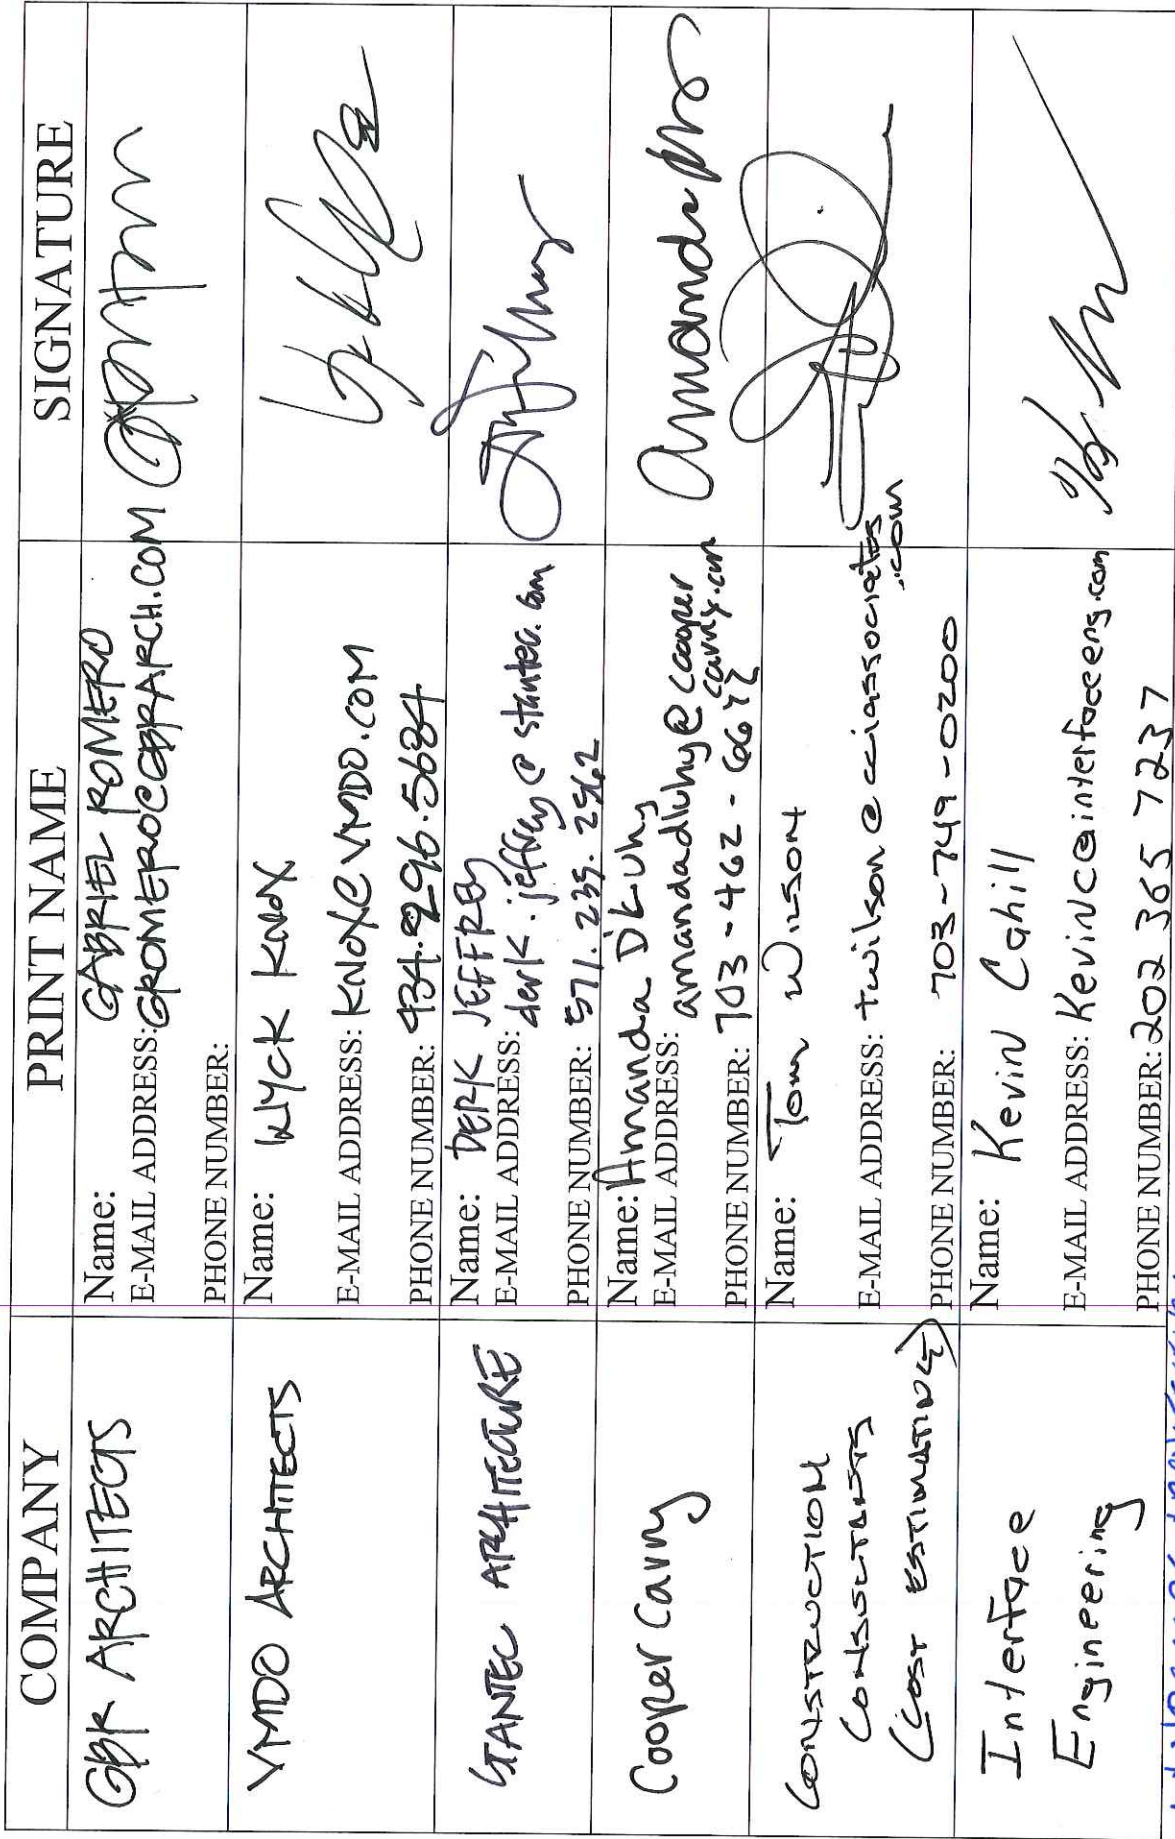 COMPANY PRINT NAME SIGNATURE
GBR ARCHITECTS
Name: GABRIEL ROMERO
E-MAIL ADDRESS: GROMERO@GBRARCH.COM
PHONE NUMBER:
VMDO ARCHITECTS
Name: WYCK KNOX
E-MAIL ADDRESS: KNOX@VMDO.COM
PHONE NUMBER: 434.296.5684
STANTEC ARCHITECTURE
Name: DERK JEFFREY
E-MAIL ADDRESS: derk.jeffrey@stantec.com
PHONE NUMBER: 571.235.2562
Cooper Carry
Name: Amanda Dluhy
E-MAIL ADDRESS: amandadluhy@cooper
carry.com
PHONE NUMBER: 703-462-
CONSTRUCTION
CONSULTANTS
(COST ESTIMATING)
Name: Tom Wilson
E-MAIL ADDRESS: twilson@cciassociates
.com
PHONE NUMBER: 703-749-0200
Interface
Engineering
Name: Kevin Cahill
E-MAIL ADDRESS: Kevinc@interfaceeng.com
PHONE NUMBER: 202 365 7237